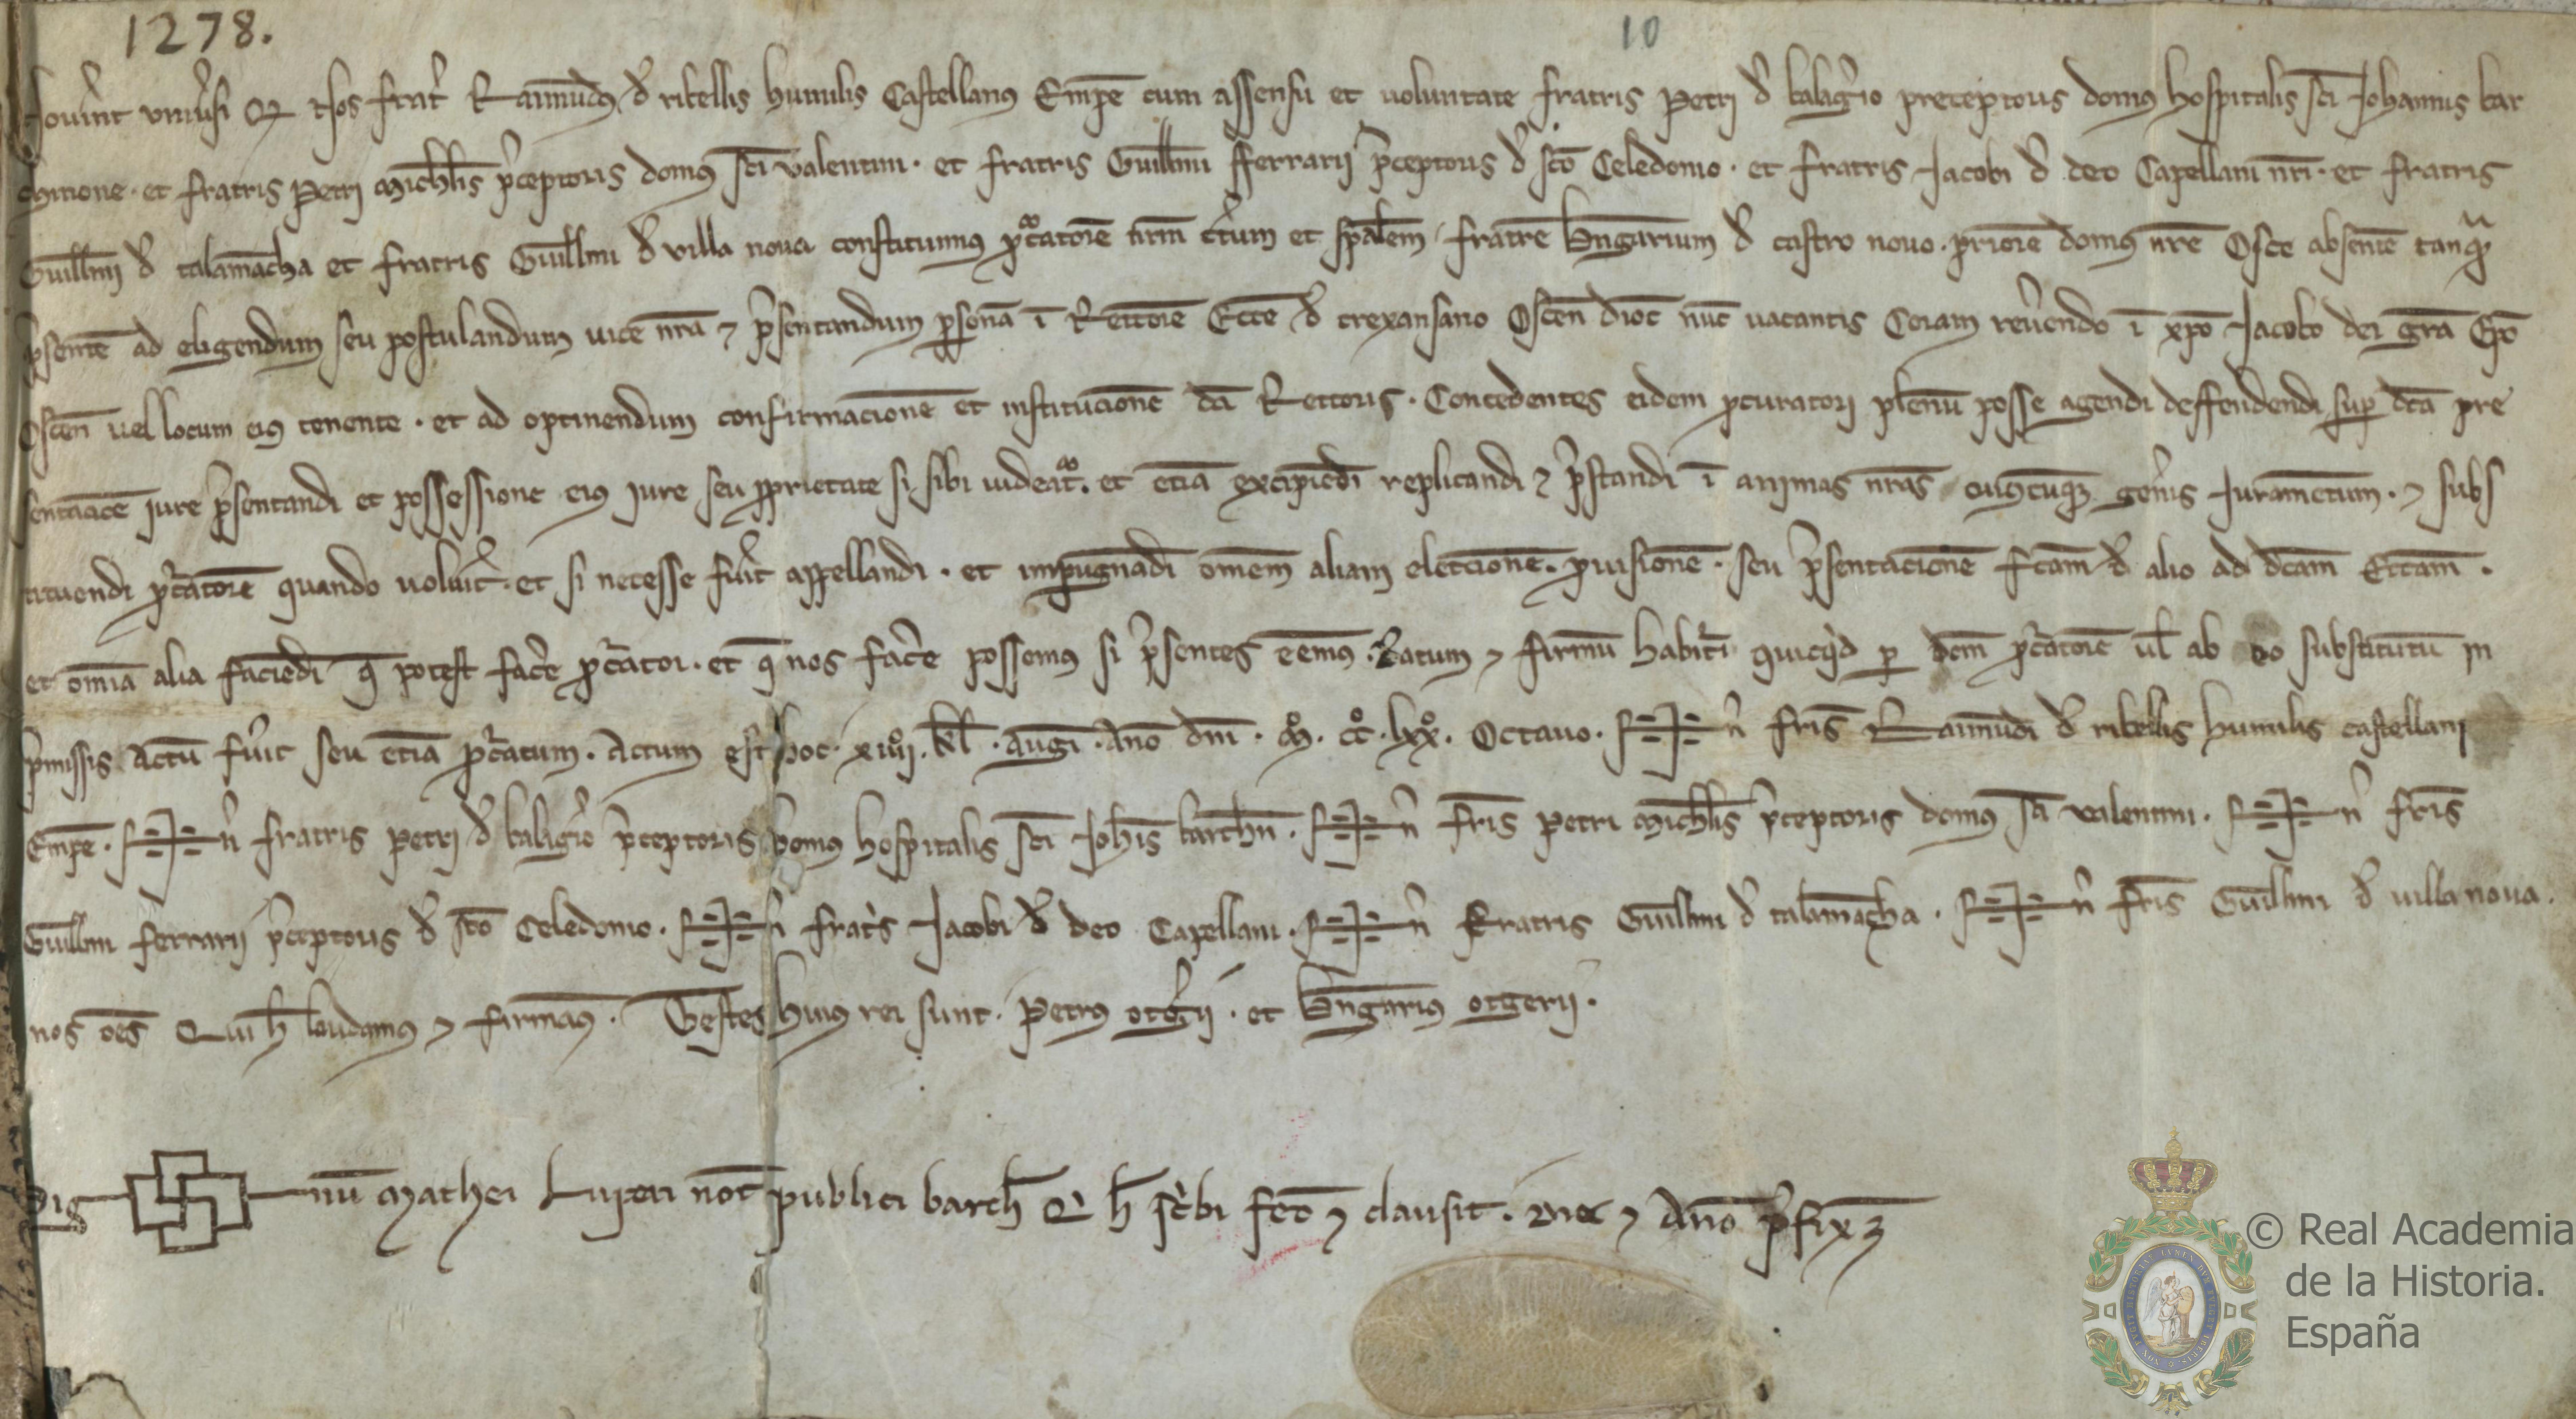 1278.
10
Noverint universi Q Nos frater Raimundus d ribellis humilis Castellanus Empe cum assensu et voluntate fratris Petri d balagerio preceptoris domus hospitalis sci Johannis bar
chinone · et fratris Petri michlis preceptoris domus sci valentini · et fratris Guillmi fferrarii preceptoris d sco Celedonio · et fratris Jacobi d deo Capellani nri · et fratris
Guillmi d talamacha et fratris Guillmi d villa nova constituimus pcatore nrm certum et spalem fratre bngarium d castro novo · priore domus nre Osce absente tanq
psente ad eligendum seu postulandum vice nra et psentandum psona i Rectore Ecce d trexansano Oscen dioc nuc vacantis Coram reverendo i xpo Jacobo dei gra Epo
Oscen vel locum eius tenente · et ad optinendum confirmacione et institucione dci Rectoris · Concedentes eidem pcuratori plenu posse agendi deffendendi sup dca pre
sentacioe jure psentandi et possessione eius jure seu pprietate si sibi videat · et etia excipiedi replicandi et pstandi i animas nras cuiuscuq genis Juramectum · et subs
tituendi pcatore quando voluit · et si necesse fuit appellandi · et impugnadi omem aliam eleccione · pvisione · seu psentacione fcam d alio ad dcam Eccam ·
et omia alia faciedi q potest face pcator · et q nos face possemus si psentes eemus · Ratum et firmu habituri quicqd p dcm pcatore ul ab eo substitutu in
pmissis actu fuit seu etia pcatum · Actum est hoc · xiiii · kl · augi · Ano dni · M · CC · lxx · Octavo · S n fris Raimudi d ribellis humilis castellani
Empe · S n fratris Petri d balagio pceptoris domus hospitalis sci Johis barchn · S n fris Petri michlis pceptoris domus sci valentini · S n fris
Guillmi ferrarii pceptoris d sco Celedonio · S n fratis Jacobi d deo Capellani · S n Fratris Guillmi d talamacha · S n fris Guillmi d villa nova ·
nos oes Qui h laudamus et firmaus · Testes huius rei sunt · Petrus otgii · et bngarius otgerii ·
Sig nu Mathei Luperi not publici barch Q h scbi fco et clausit · die et Ano pfix
© Real Academia
de la Historia.
España